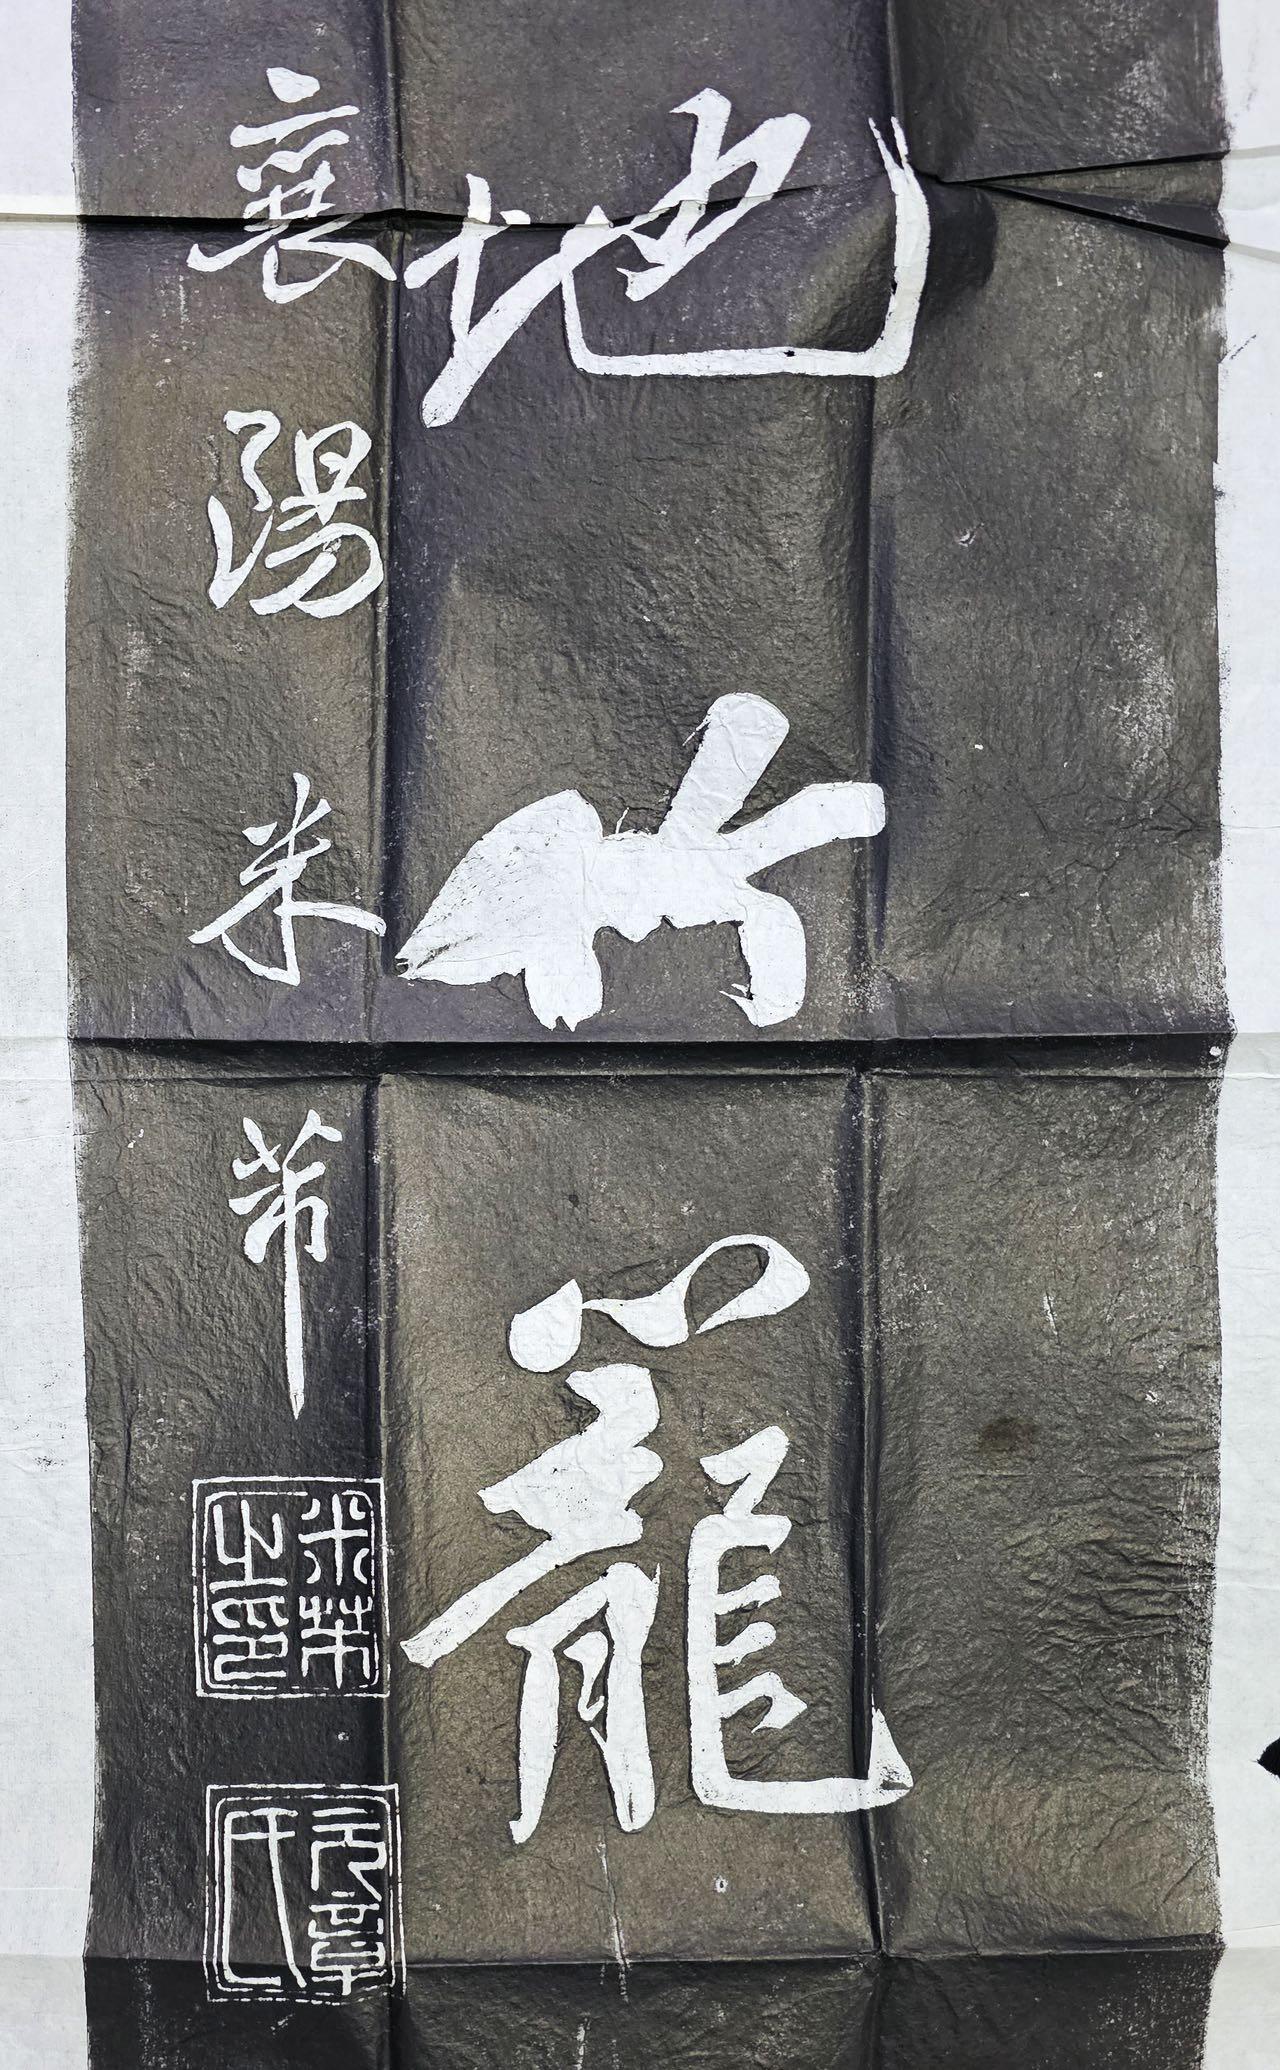 地竹籠
襄陽米芾
米芾之印
元章氏